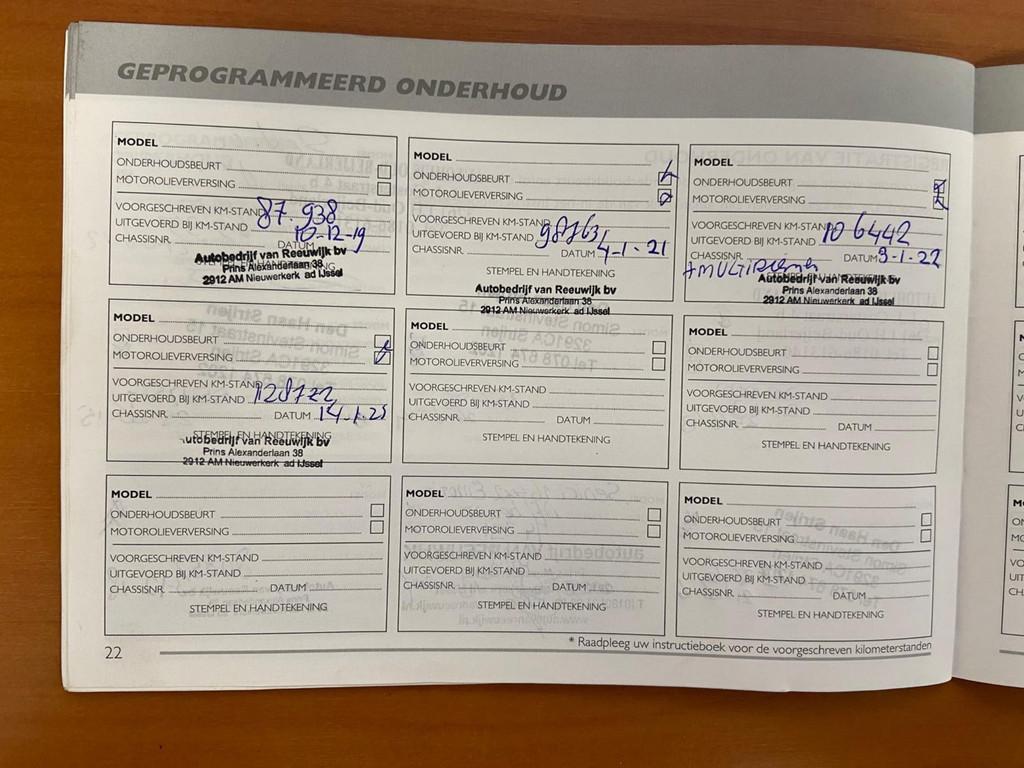 GEPROGRAMMEERD ONDERHOUD
MODEL
ONDERHOUDSBEURT
MOTOROLIEVERVERSING
VOORGESCHREVEN KM-STAND
UITGEVOERD BIJ KM-STAND 87.938
CHASSISNR. DATUM 10-12-19
STEMPEL EN HANDTEKENING
Autobedrijf van Reeuwijk bv
Prins Alexanderlaan 38
2912 AM Nieuwerkerk ad IJssel
MODEL
ONDERHOUDSBEURT
MOTOROLIEVERVERSING
VOORGESCHREVEN KM-STAND
UITGEVOERD BIJ KM-STAND 98763
CHASSISNR. DATUM 4-1-21
STEMPEL EN HANDTEKENING
Autobedrijf van Reeuwijk bv
Prins Alexanderlaan 38
2912 AM Nieuwerkerk ad IJssel
MODEL
ONDERHOUDSBEURT
MOTOROLIEVERVERSING
VOORGESCHREVEN KM-STAND
UITGEVOERD BIJ KM-STAND 106442
CHASSISNR. DATUM 3-1-22
STEMPEL EN HANDTEKENING
Autobedrijf van Reeuwijk bv
Prins Alexanderlaan 38
2912 AM Nieuwerkerk ad IJssel
MODEL
ONDERHOUDSBEURT
MOTOROLIEVERVERSING
VOORGESCHREVEN KM-STAND
UITGEVOERD BIJ KM-STAND 128722
CHASSISNR. DATUM 14-1-25
STEMPEL EN HANDTEKENING
utobedrijf van Reeuwijk bv
Prins Alexanderlaan 38
2912 AM Nieuwerkerk ad IJssel
MODEL
ONDERHOUDSBEURT
MOTOROLIEVERVERSING
VOORGESCHREVEN KM-STAND
UITGEVOERD BIJ KM-STAND
CHASSISNR. DATUM
STEMPEL EN HANDTEKENING
MODEL
ONDERHOUDSBEURT
MOTOROLIEVERVERSING
VOORGESCHREVEN KM-STAND
UITGEVOERD BIJ KM-STAND
CHASSISNR. DATUM
STEMPEL EN HANDTEKENING
MODEL
ONDERHOUDSBEURT
MOTOROLIEVERVERSING
VOORGESCHREVEN KM-STAND
UITGEVOERD BIJ KM-STAND
CHASSISNR. DATUM
STEMPEL EN HANDTEKENING
MODEL
ONDERHOUDSBEURT
MOTOROLIEVERVERSING
VOORGESCHREVEN KM-STAND
UITGEVOERD BIJ KM-STAND
CHASSISNR. DATUM
STEMPEL EN HANDTEKENING
MODEL
ONDERHOUDSBEURT
MOTOROLIEVERVERSING
VOORGESCHREVEN KM-STAND
UITGEVOERD BIJ KM-STAND
CHASSISNR. DATUM
STEMPEL EN HANDTEKENING
* Raadpleeg uw instructieboek voor de voorgeschreven kilometerstanden
22